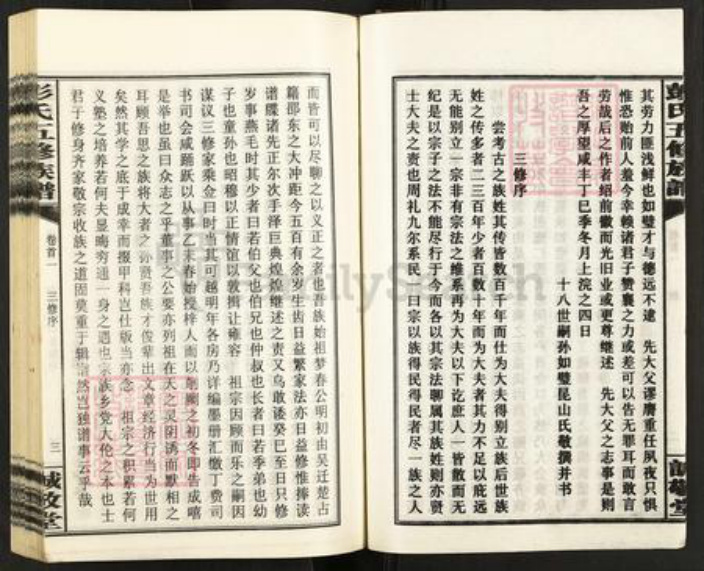 彭氏五修族譜
其劳力匪浅鲜也如璧才与德远不逮 先大父谬膺重任夙夜只惧
惟恐贻前人羞今幸赖诸君子赞襄之力或差可以告无罪耳而敢言
劳哉后之作者绍前徽而光旧业或更尊继述 先大父之志事是则
吾之厚望咸丰丁巳季冬月上浣之四日
十八世嗣孙如璧昆山氏敬撰并书
三修序
尝考古之族姓其传皆数百千年而仕为大夫得别立族后世族
姓之传多者二三百年少者百数十年而为大夫者其力不足以庇远
无能别立一宗非有宗法之维系再为大夫以下讫庶人一皆散而无
纪是以宗子之法不能尽行于今而各以其宗法聊属其族姓则亦贤
士大夫之责也周礼九尔系民 曰宗以族得民得民者尽一族之人
彭氏五修族譜
卷首一
三修序
三
誠敬堂
而皆可以尽聊之以义正之者也吾族始祖梦春公明初由吴迁楚占
籍邵东之大冲距今五百有余岁生齿日益繁家法亦日益修惟捧读
谱牒诸先正尔次手泽巨典煌煌继述之责又乌敢诿癸巳至日只修
岁事燕毛时其少者曰若伯父也伯兄也仲叔也长者曰若季弟也幼
子也童孙也昭穆以正情谊以敦揖让雍容 祖宗因顾而乐之嗣因
谋议三修家乘佥曰时当其可越明年各房乃详编墨册汇缴丁费司
书司会咸踊跃以从事乙未春始授梓人而以 之初冬即告成嘻
是举也虽曰众志之乎董事之公要亦列祖在天之灵阴诱而默相之
耳顾吾思之族将大者之孙贤吾族才俊辈出文章经济行当为世用
矣然其学之底于成幸而掇甲科岂仕版当亦念 祖宗之积累若何
义塾之培养若何夫显晦穷通一身之遇也宗族乡党人伦之本也士
君子修身齐家敬宗收族之道固莫重于辑 然岂独谱事云乎哉